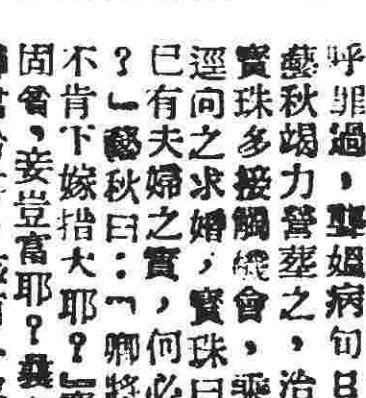 呼罪過，聾媼病旬日
藝秋竭力營葬之，治
寶珠多接觸機會，乘
逕向之求婚，寶珠曰
已有夫婦之實，何必
？」藝秋曰：「卿將
不肯下嫁措大耶？」
固曾，妾豈富耶？曩